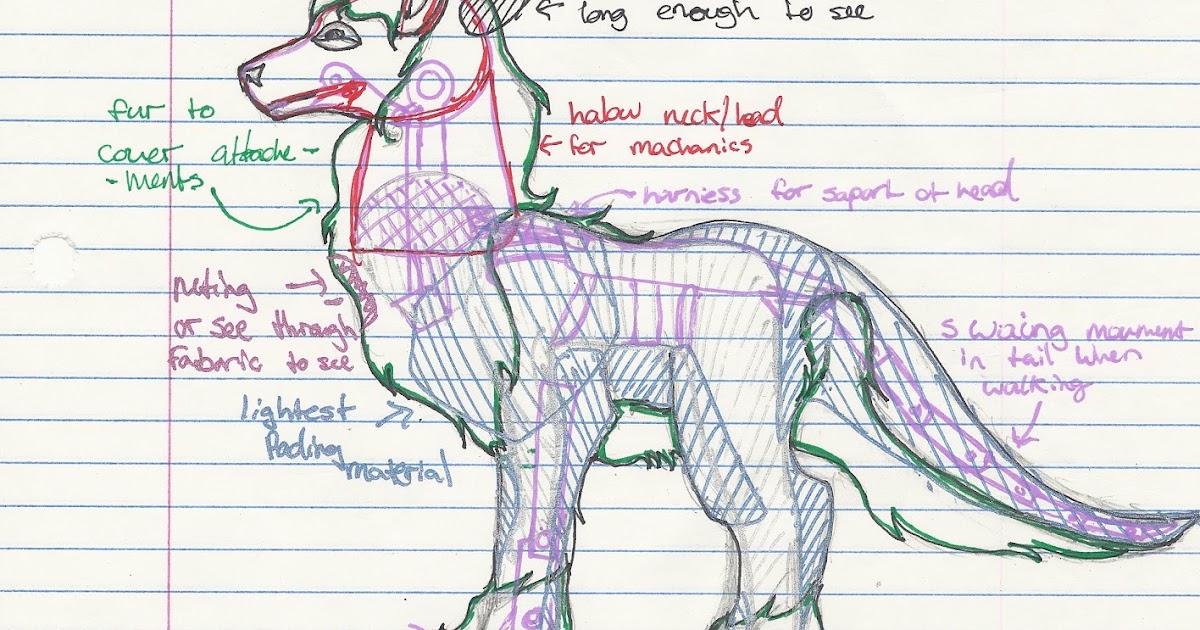 long enough to see
fur to
cover attache -
- ments
halow neck/head
for machanics
harniess for saport of head
neting
or see through
fabaric to see
lightest
Pading
material
swixing movment
in tail when
walking